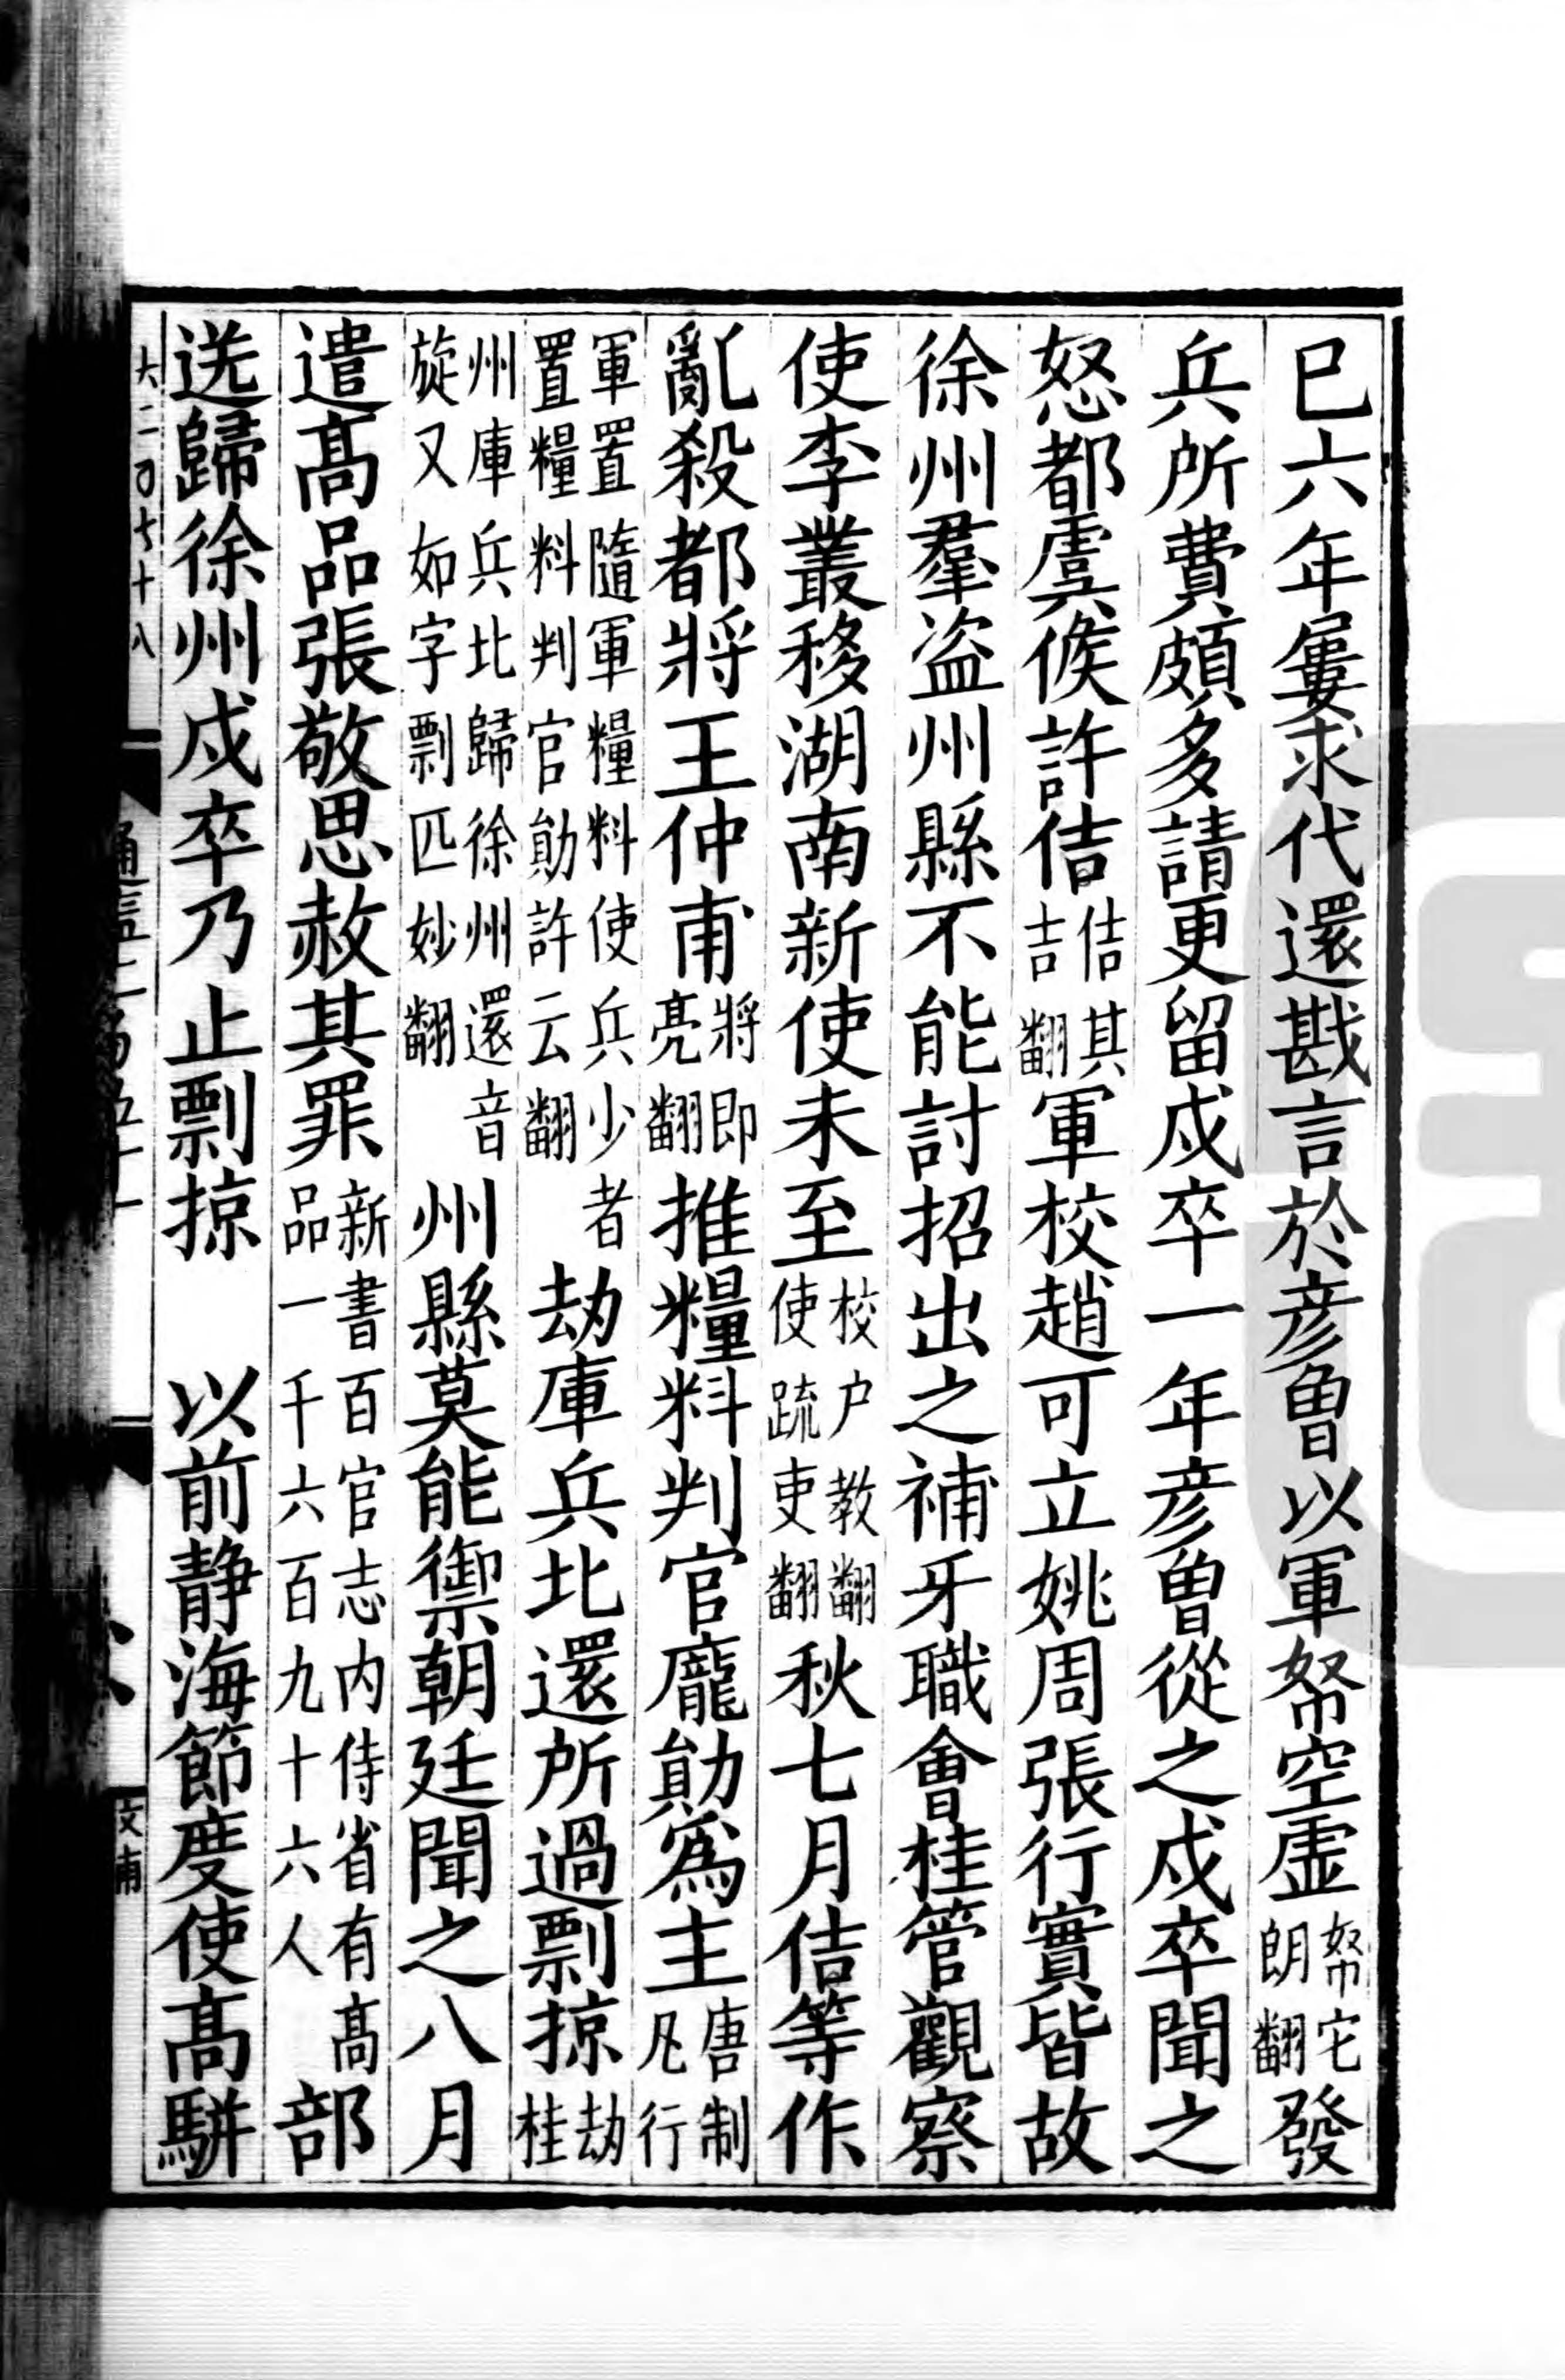 已六年屢求代還戡言於彥曾以軍帑空虛帑宅朗翻發
兵所費頗多請更留戍卒一年彥曾從之戍卒聞之
怒都虞候許佶佶其吉翻軍校趙可立姚周張行實皆故
徐州羣盜州縣不能討招出之補牙職會桂管觀察
使李叢移湖南新使未至校户教翻使疏吏翻秋七月佶等作
亂殺都將王仲甫將即亮翻推糧料判官龐勛爲主唐制凡行
軍置隨軍糧料使兵少者置糧料判官勛許云翻劫庫兵北還所過剽掠劫桂
州庫兵北歸徐州還音旋又如字剽匹妙翻州縣莫能禦朝廷聞之八月
遣高品張敬思赦其罪新書百官志内侍省有高品一千六百九十六人部
送歸徐州戍卒乃止剽掠　以前静海節度使高駢
大二百七十八